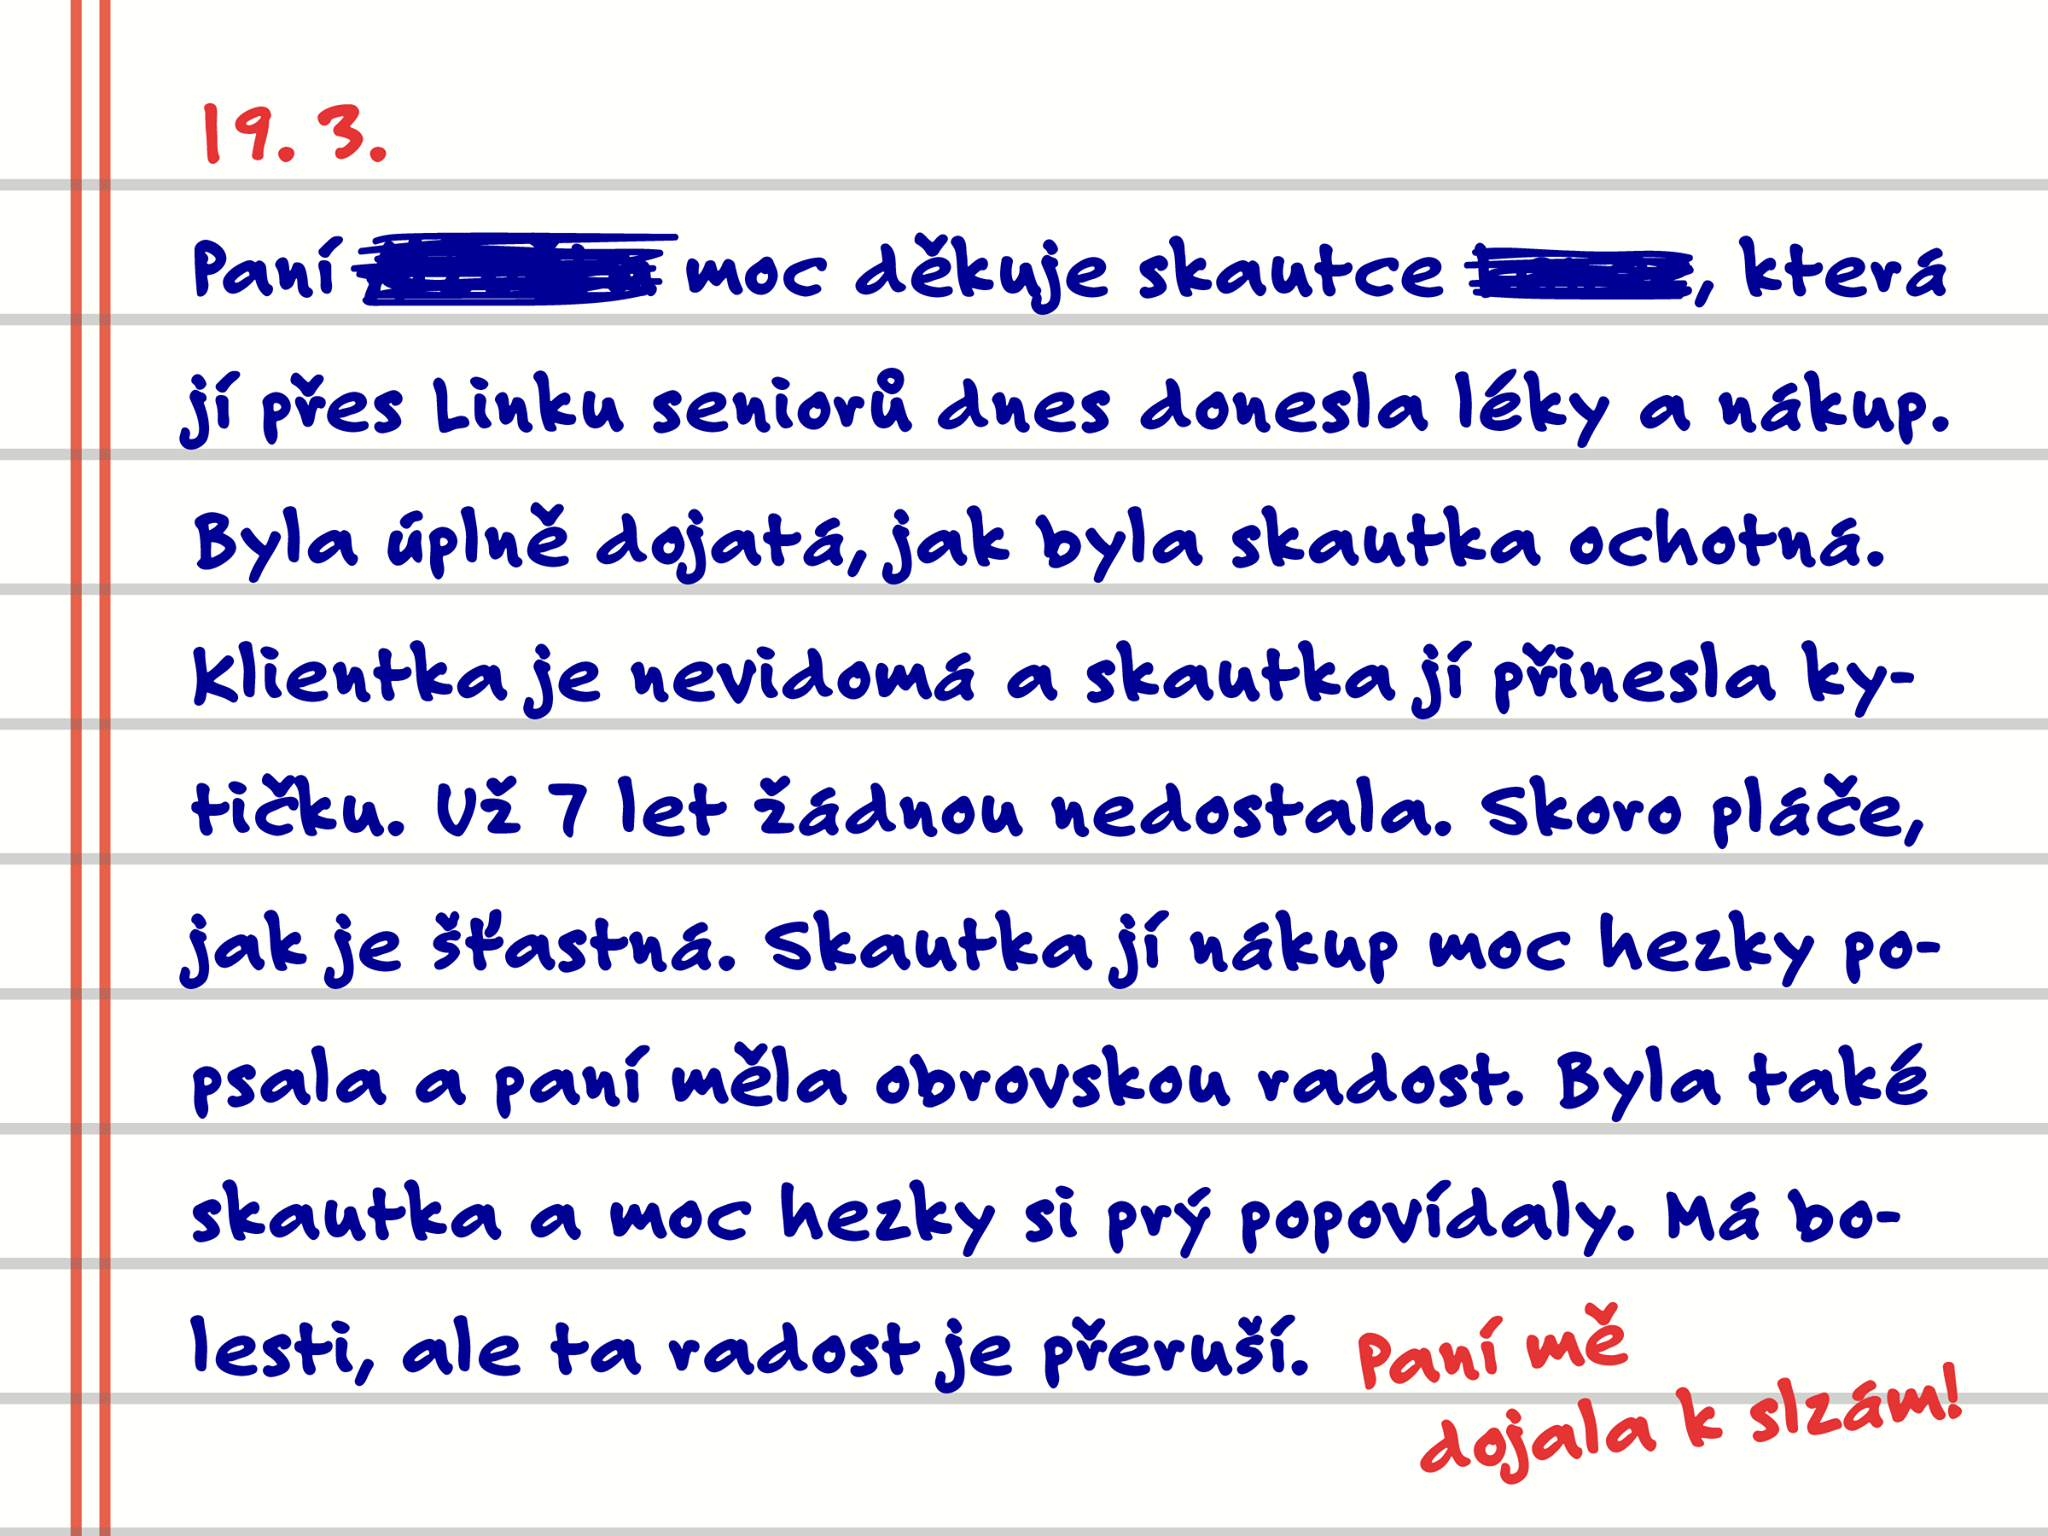 19. 3.
Paní moc děkuje skautce , která
jí přes Linku seniorů dnes donesla léky a nákup.
Byla úplně dojatá, jak byla skautka ochotná.
Klientka je nevidomá a skautka jí přinesla ky-
tičku. Už 7 let žádnou nedostala. Skoro pláče,
jak je šťastná. Skautka jí nákup moc hezky po-
psala a paní měla obrovskou radost. Byla také
skautka a moc hezky si prý popovídaly. Má bo-
lesti, ale ta radost je přeruší.
Paní mě
dojala k slzám!